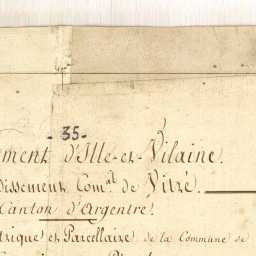 - 35 -
ement d'Ille-et-Vilaine.
dissement Com.^al de Vitré.
Canton d'Argentré.
trique et Parcellaire de la Commune de